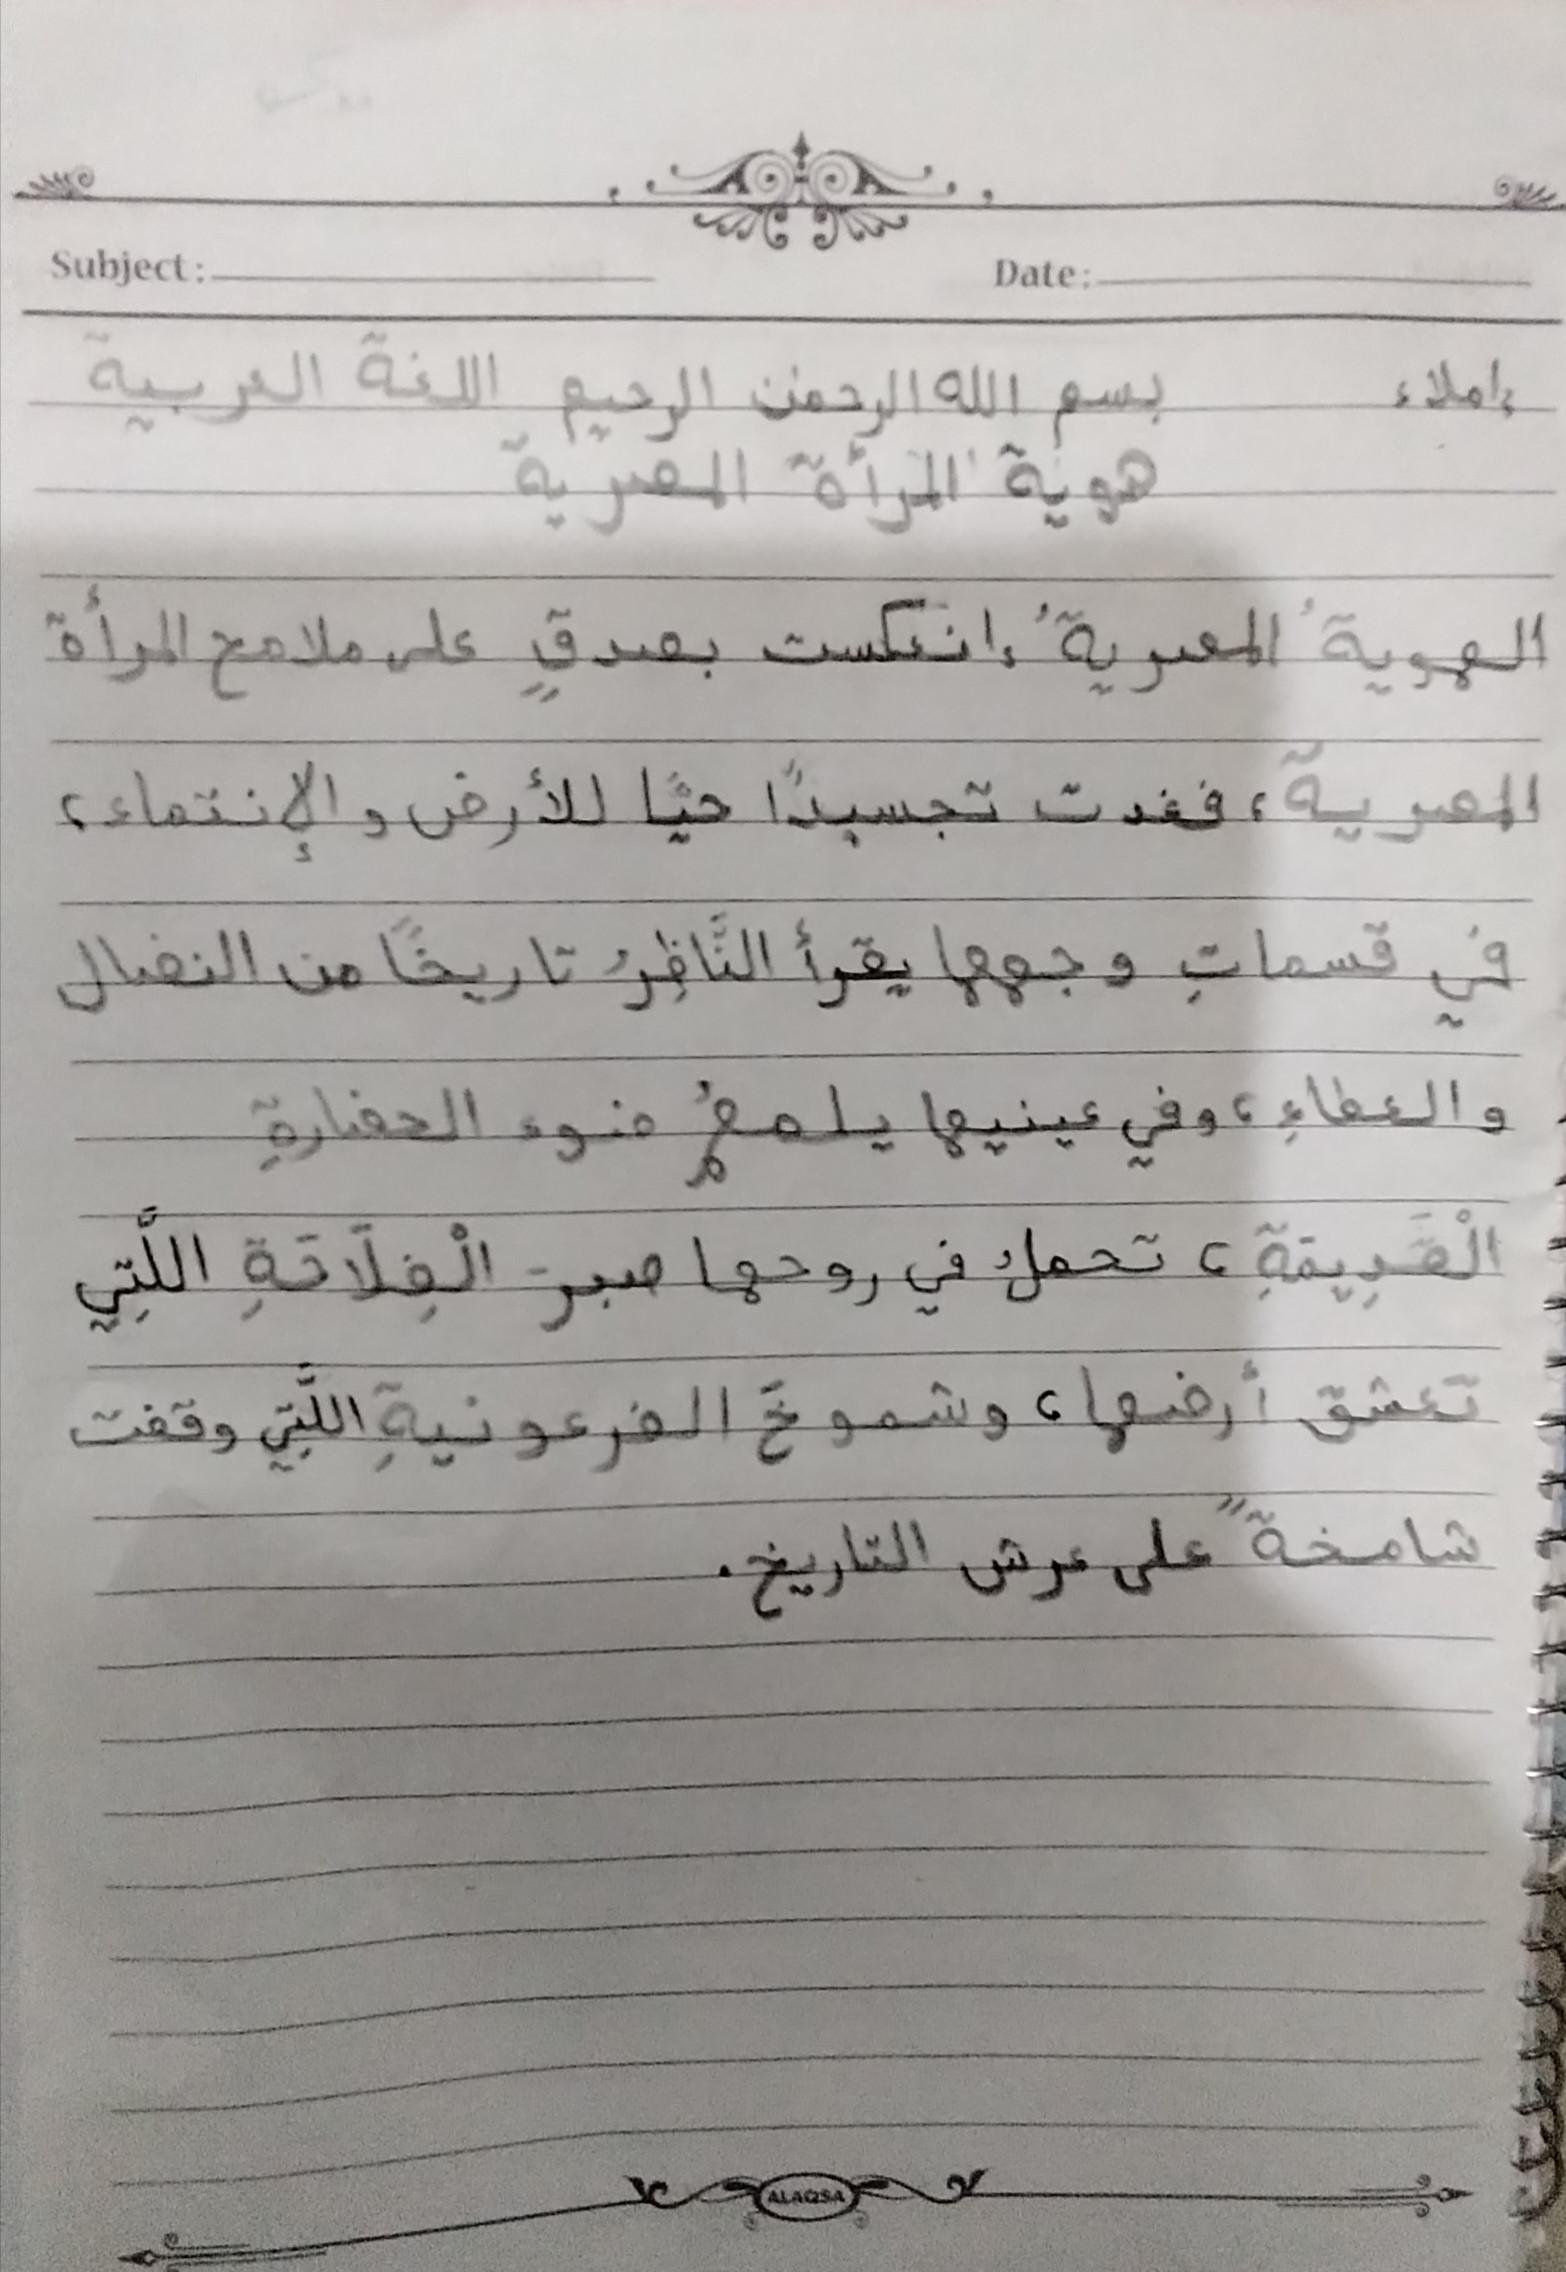 Subject: Date:
إملاء بسم الله الرحمن الرحيم اللغة العربية
هوية المرأة المصرية
الهوية المصرية إنعكست بصدقٍ على ملامح المرأة
المصرية، فغدت تجسيدًا حيًا للأرض والإنتماء،
في قسماتِ وجهها يقرأ النَّاظِرُ تاريخًا من النضال
والعطاءِ، وفي عينيها يلمعُ ضوء الحضارةِ
الْقَدِيمَةِ، تحملُ في روحها صبرَ الْفِلَاحَةِ اللَّتِي
تعشق أرضها، وشموخَ الفرعونيةِ اللَّتِي وقفت
شامخةً على عرش التاريخ.
ALAQSA